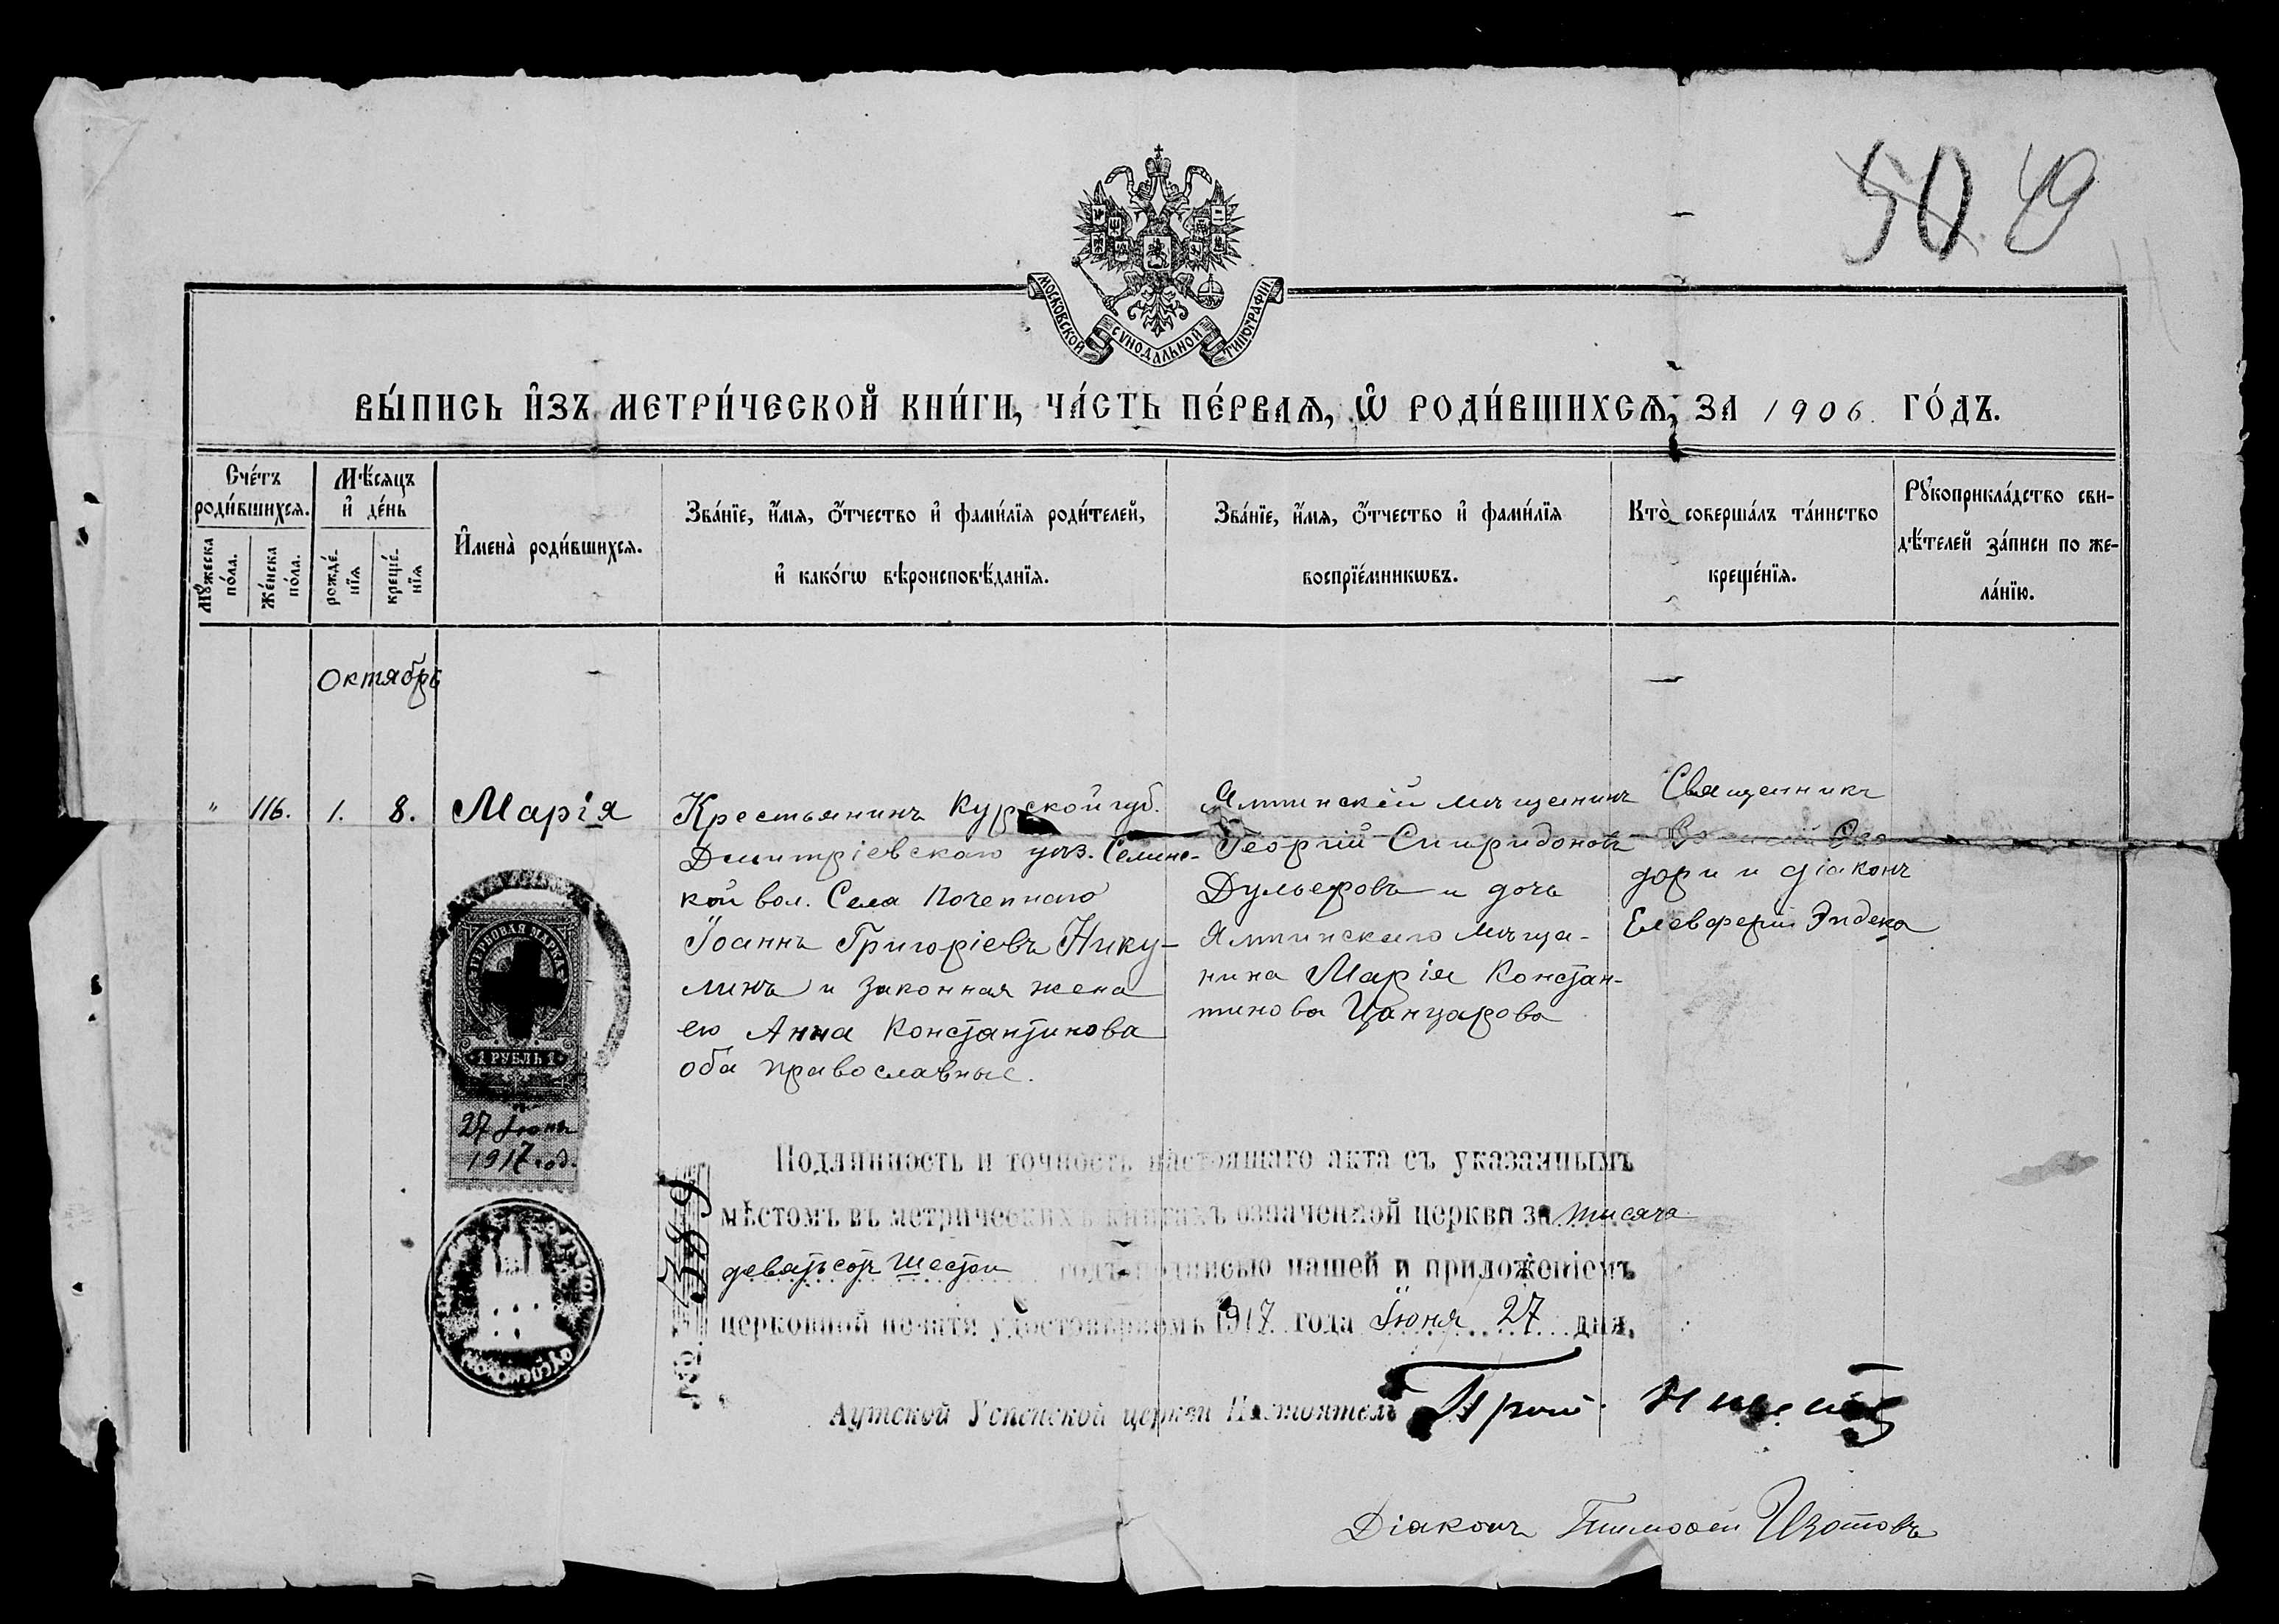 50 49
МОСКОВСКОЙ СѴНОДАЛЬНОЙ ТИПОГРАФІИ
ВЫ́ПИСЬ И҆ЗЪ МЕТРИ́ЧЕСКОЙ КНИ́ГИ, ЧА́СТЬ ПЕ́РВАѦ, Ѽ РОДИ́ВШИХСѦ, ЗА 1906. ГО́ДЪ.
Сче́тъ роди́вшихсѧ.
Мꙋ́жеска по́ла.
Же́нска по́ла.
Мѣ́сѧцъ и҆ де́нь
рожде́-нїѧ
креще́-нїѧ
И҆мена̀ роди́вшихсѧ.
Зва́нїе, и҆́мѧ, ѻ҆́тчество и҆ фами́лїѧ роди́телей,
и҆ како́гѡ вѣроисповѣ́данїѧ.
Зва́нїе, и҆́мѧ, ѻ҆́тчество и҆ фами́лїѧ
воспрїе́мникѡвъ.
Кто̀ соверша́лъ та́инство
креще́нїѧ.
Рꙋкоприкла́дство сви-
дѣ́телей за́писи по же-
ла́нїю.
Октябрь
" 116. 1. 8. Марія
Крестьянинъ Курской губ.
Дмитріевскаго уѣз. Селино-
кой вол. Села Почепнаго
Іоаннъ Григоріевъ Нику-
линъ и законная жена
его Анна Константинова
оба православные.
Ялтинскій мѣщанинъ
Георгій Спиридоновъ
Дульеровъ и дочь
Ялтинскаго мѣща-
нина Марія Констан-
тинова Цанцарова
Священникъ
дори и діаконъ
Елевферій Эндека
ГЕРБОВАЯ МАРКА
1 РУБЛЬ 1
27 Іюня
1917 год.
№ 389
Подлинность и точность настоящаго акта съ указаннымъ
мѣстомъ въ метрическихъ книгахъ означенной церкви за тысяча
девятьсотъ шестой годъ подписью нашей и приложеніемъ
церковной печати удостовѣряемъ 1917 года Іюня 27 дня.
Аутской Успенской церкви Настоятель Прот.
Діаконъ Тимофей Изотовъ